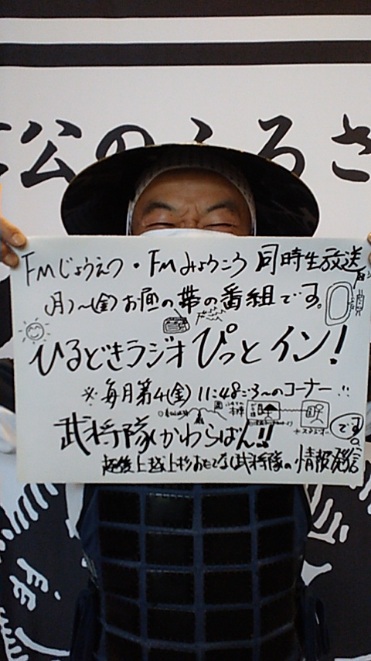 公のふるさ
FMじょうえつ・FMみょうこう 同時生放送
(月)〜(金)お昼の帯の番組です。
ひるどきラジオ ぴっとイン!
※毎月第4(金) 11:48ごろ〜のコーナー
武将隊かわらばん!!
です。
越後上越上杉おもてなし武将隊の情報発信